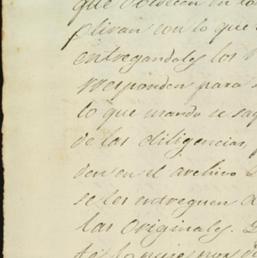 que
plivan con lo que
entregandoles los
rresponden para
lo que mando se saq
de las diligencias,
den en el archivo
se les entreguen
las originales.